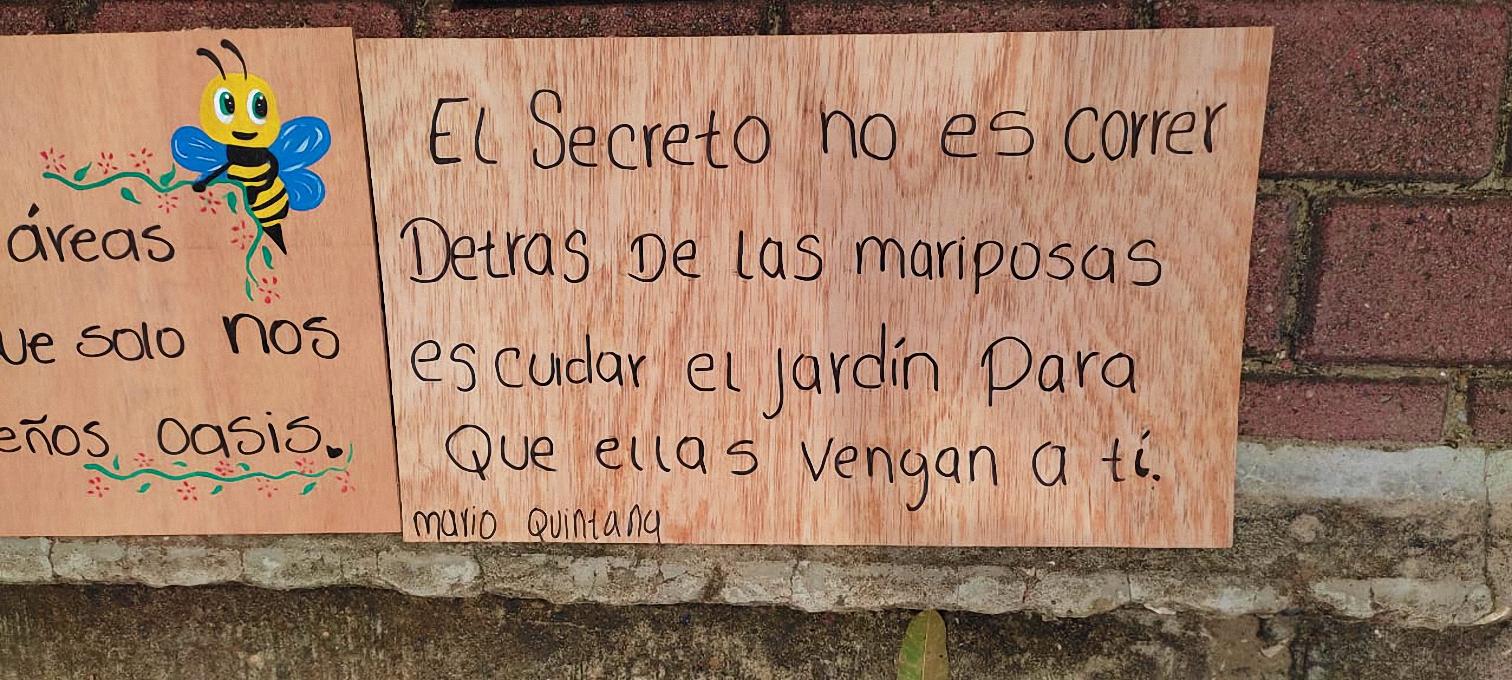 áreas
ue solo nos
eños oasis.
El Secreto no es correr
Detras De las mariposas
es cuidar el jardín Para
Que ellas vengan a tí.
mario Quintana